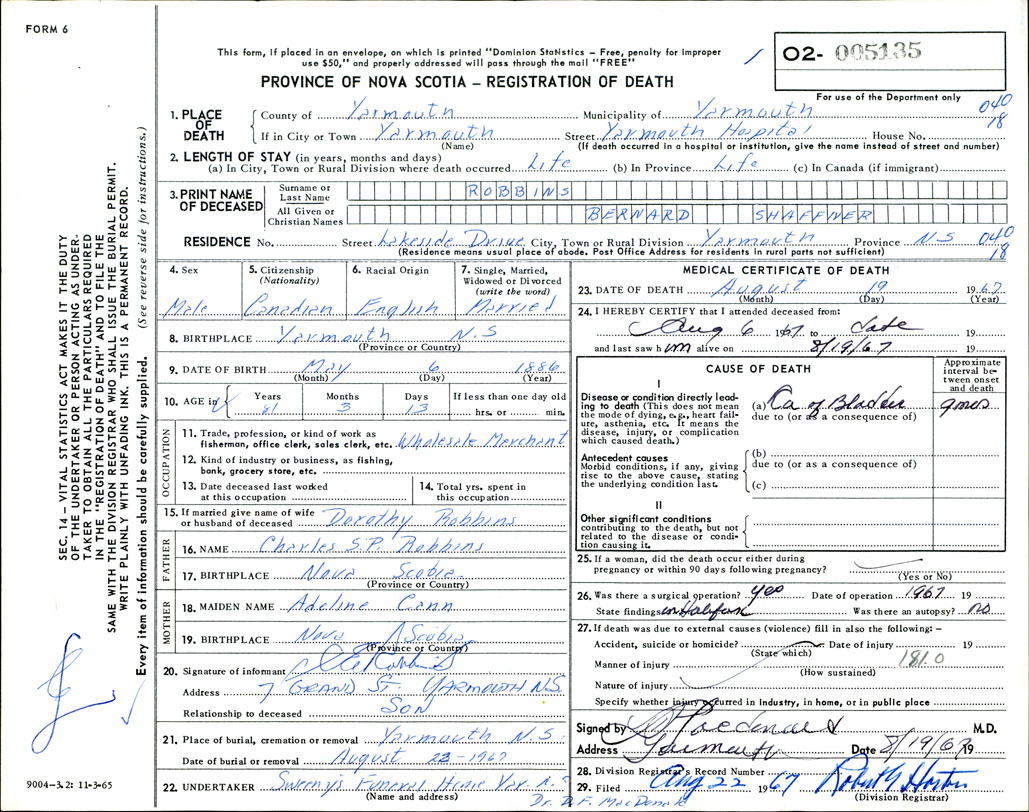 FORM 6
This form, if placed in an envelope, on which is printed "Dominion Statistics – Free, penalty for improper
use $50," and properly addressed will pass through the mail "FREE"
O2- 005135
PROVINCE OF NOVA SCOTIA – REGISTRATION OF DEATH
For use of the Department only
040
18
1. PLACE OF DEATH
County of Yarmouth Municipality of Yarmouth
If in City or Town Yarmouth Street Yarmouth Hospital House No.
(Name) (If death occurred in a hospital or institution, give the name instead of street and number)
2. LENGTH OF STAY (in years, months and days)
(a) In City, Town or Rural Division where death occurred Life (b) In Province Life (c) In Canada (if immigrant)
3. PRINT NAME OF DECEASED
Surname or Last Name ROBBINS
All Given or Christian Names BERNARD SHAFFNER
RESIDENCE No. Street Lakeside Drive City, Town or Rural Division Yarmouth Province NS 040
(Residence means usual place of abode. Post Office Address for residents in rural parts not sufficient) 18
4. Sex Male
5. Citizenship (Nationality) Canadian
6. Racial Origin English
7. Single, Married, Widowed or Divorced (write the word) Married
8. BIRTHPLACE Yarmouth N.S
(Province or Country)
9. DATE OF BIRTH May 6 1886
(Month) (Day) (Year)
10. AGE in Years 81 Months 3 Days 13 If less than one day old hrs. or min.
OCCUPATION
11. Trade, profession, or kind of work as fisherman, office clerk, sales clerk, etc. Wholesale Merchant
12. Kind of industry or business, as fishing, bank, grocery store, etc.
13. Date deceased last worked at this occupation
14. Total yrs. spent in this occupation
15. If married give name of wife or husband of deceased Dorothy Robbins
FATHER
16. NAME Charles S.P. Robbins
17. BIRTHPLACE Nova Scotia
(Province or Country)
MOTHER
18. MAIDEN NAME Adeline Cann
19. BIRTHPLACE Nova Scotia
(Province or Country)
20. Signature of informant
Address 7 GRAND ST. YARMOUTH N.S.
Relationship to deceased SON
21. Place of burial, cremation or removal Yarmouth N.S.
Date of burial or removal August 22-1967
22. UNDERTAKER Sweeny's Funeral Home Yar. N.S.
(Name and address)
Dr. D.F. MacDonald
MEDICAL CERTIFICATE OF DEATH
23. DATE OF DEATH August 19 1967
(Month) (Day) (Year)
24. I HEREBY CERTIFY that I attended deceased from:
Aug 6 1967 to date 19
and last saw him alive on 8/19/67 19
CAUSE OF DEATH
Approximate interval between onset and death
I
Disease or condition directly leading to death (This does not mean the mode of dying, e.g., heart failure, asthenia, etc. It means the disease, injury, or complication which caused death.)
(a) Ca of Bladder 9mos
due to (or as a consequence of)
Antecedent causes
Morbid conditions, if any, giving rise to the above cause, stating the underlying condition last.
(b)
due to (or as a consequence of)
(c)
II
Other significant conditions
contributing to the death, but not related to the disease or condition causing it.
25. If a woman, did the death occur either during pregnancy or within 90 days following pregnancy?
(Yes or No)
26. Was there a surgical operation? yes Date of operation 1967 19
State findings in Halifax Was there an autopsy? no
27. If death was due to external causes (violence) fill in also the following: –
Accident, suicide or homicide? Date of injury 19
(State which)
Manner of injury 181.0
(How sustained)
Nature of injury
Specify whether injury occurred in industry, in home, or in public place
Signed by M.D.
Address Yarmouth Date 8/19/67 19
28. Division Registrar's Record Number
29. Filed Aug 22 1967
(Division Registrar)
SEC. 14 – VITAL STATISTICS ACT MAKES IT THE DUTY
OF THE UNDERTAKER OR PERSON ACTING AS UNDER-
TAKER TO OBTAIN ALL THE PARTICULARS REQUIRED
IN THE "REGISTRATION OF DEATH" AND TO FILE THE
SAME WITH THE DIVISION REGISTRAR WHO SHALL ISSUE THE BURIAL PERMIT.
WRITE PLAINLY WITH UNFADING INK. THIS IS A PERMANENT RECORD.
Every item of information should be carefully supplied. (See reverse side for instructions.)
9004-3.2: 11-3-65